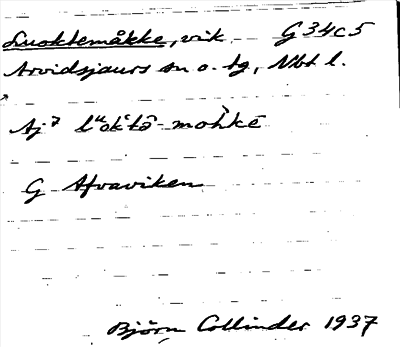 Luoktemåkke, vik. G 34c5
Arvidsjaurs sn o. tg, Nbt l.
Aj⁷ lᵘokˈtō- mohkē
G Afvaviken
Björn Collinder 1937